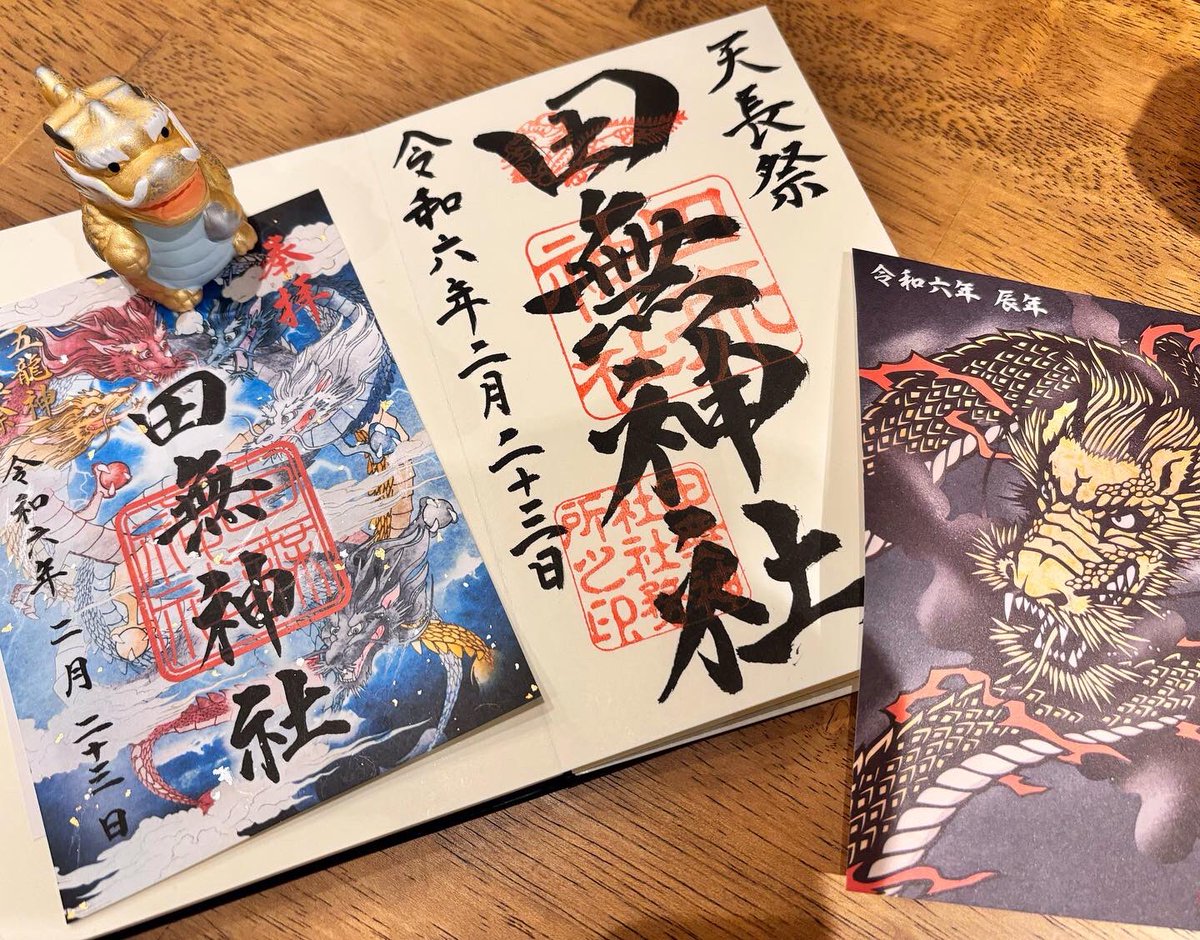 天長祭
田無神社
令和六年二月二十三日
田無神社
社務所之印
奉拝
田無神社
五龍神
令和六年 二月 二十三日
令和六年 辰年